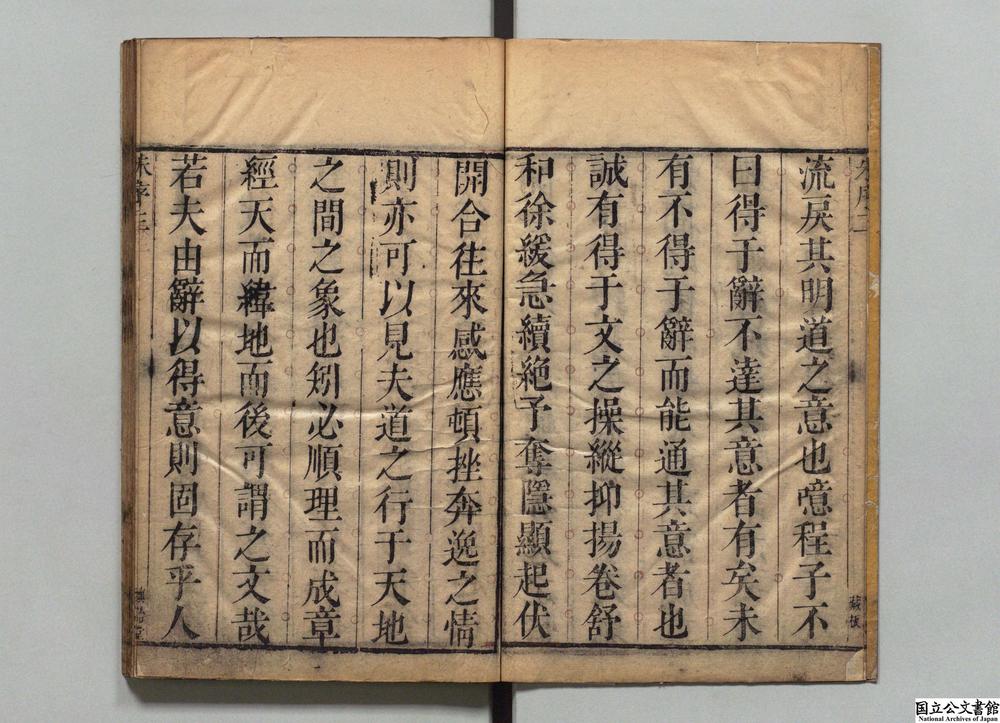 流戾其明道之意也噫程子不
曰得于辭不達其意者有矣未
有不得于辭而能通其意者也
誠有得于文之操縱抑揚卷舒
和徐緩急續絶予奪隱顯起伏
開合往來感應頓挫奔逸之情
則亦可以見夫道之行于天地
之間之象也矧必順理而成章
經天而緯地而後可謂之文哉
若夫由辭以得意則固存乎人
朱序三
国立公文書館
National Archives of Japan